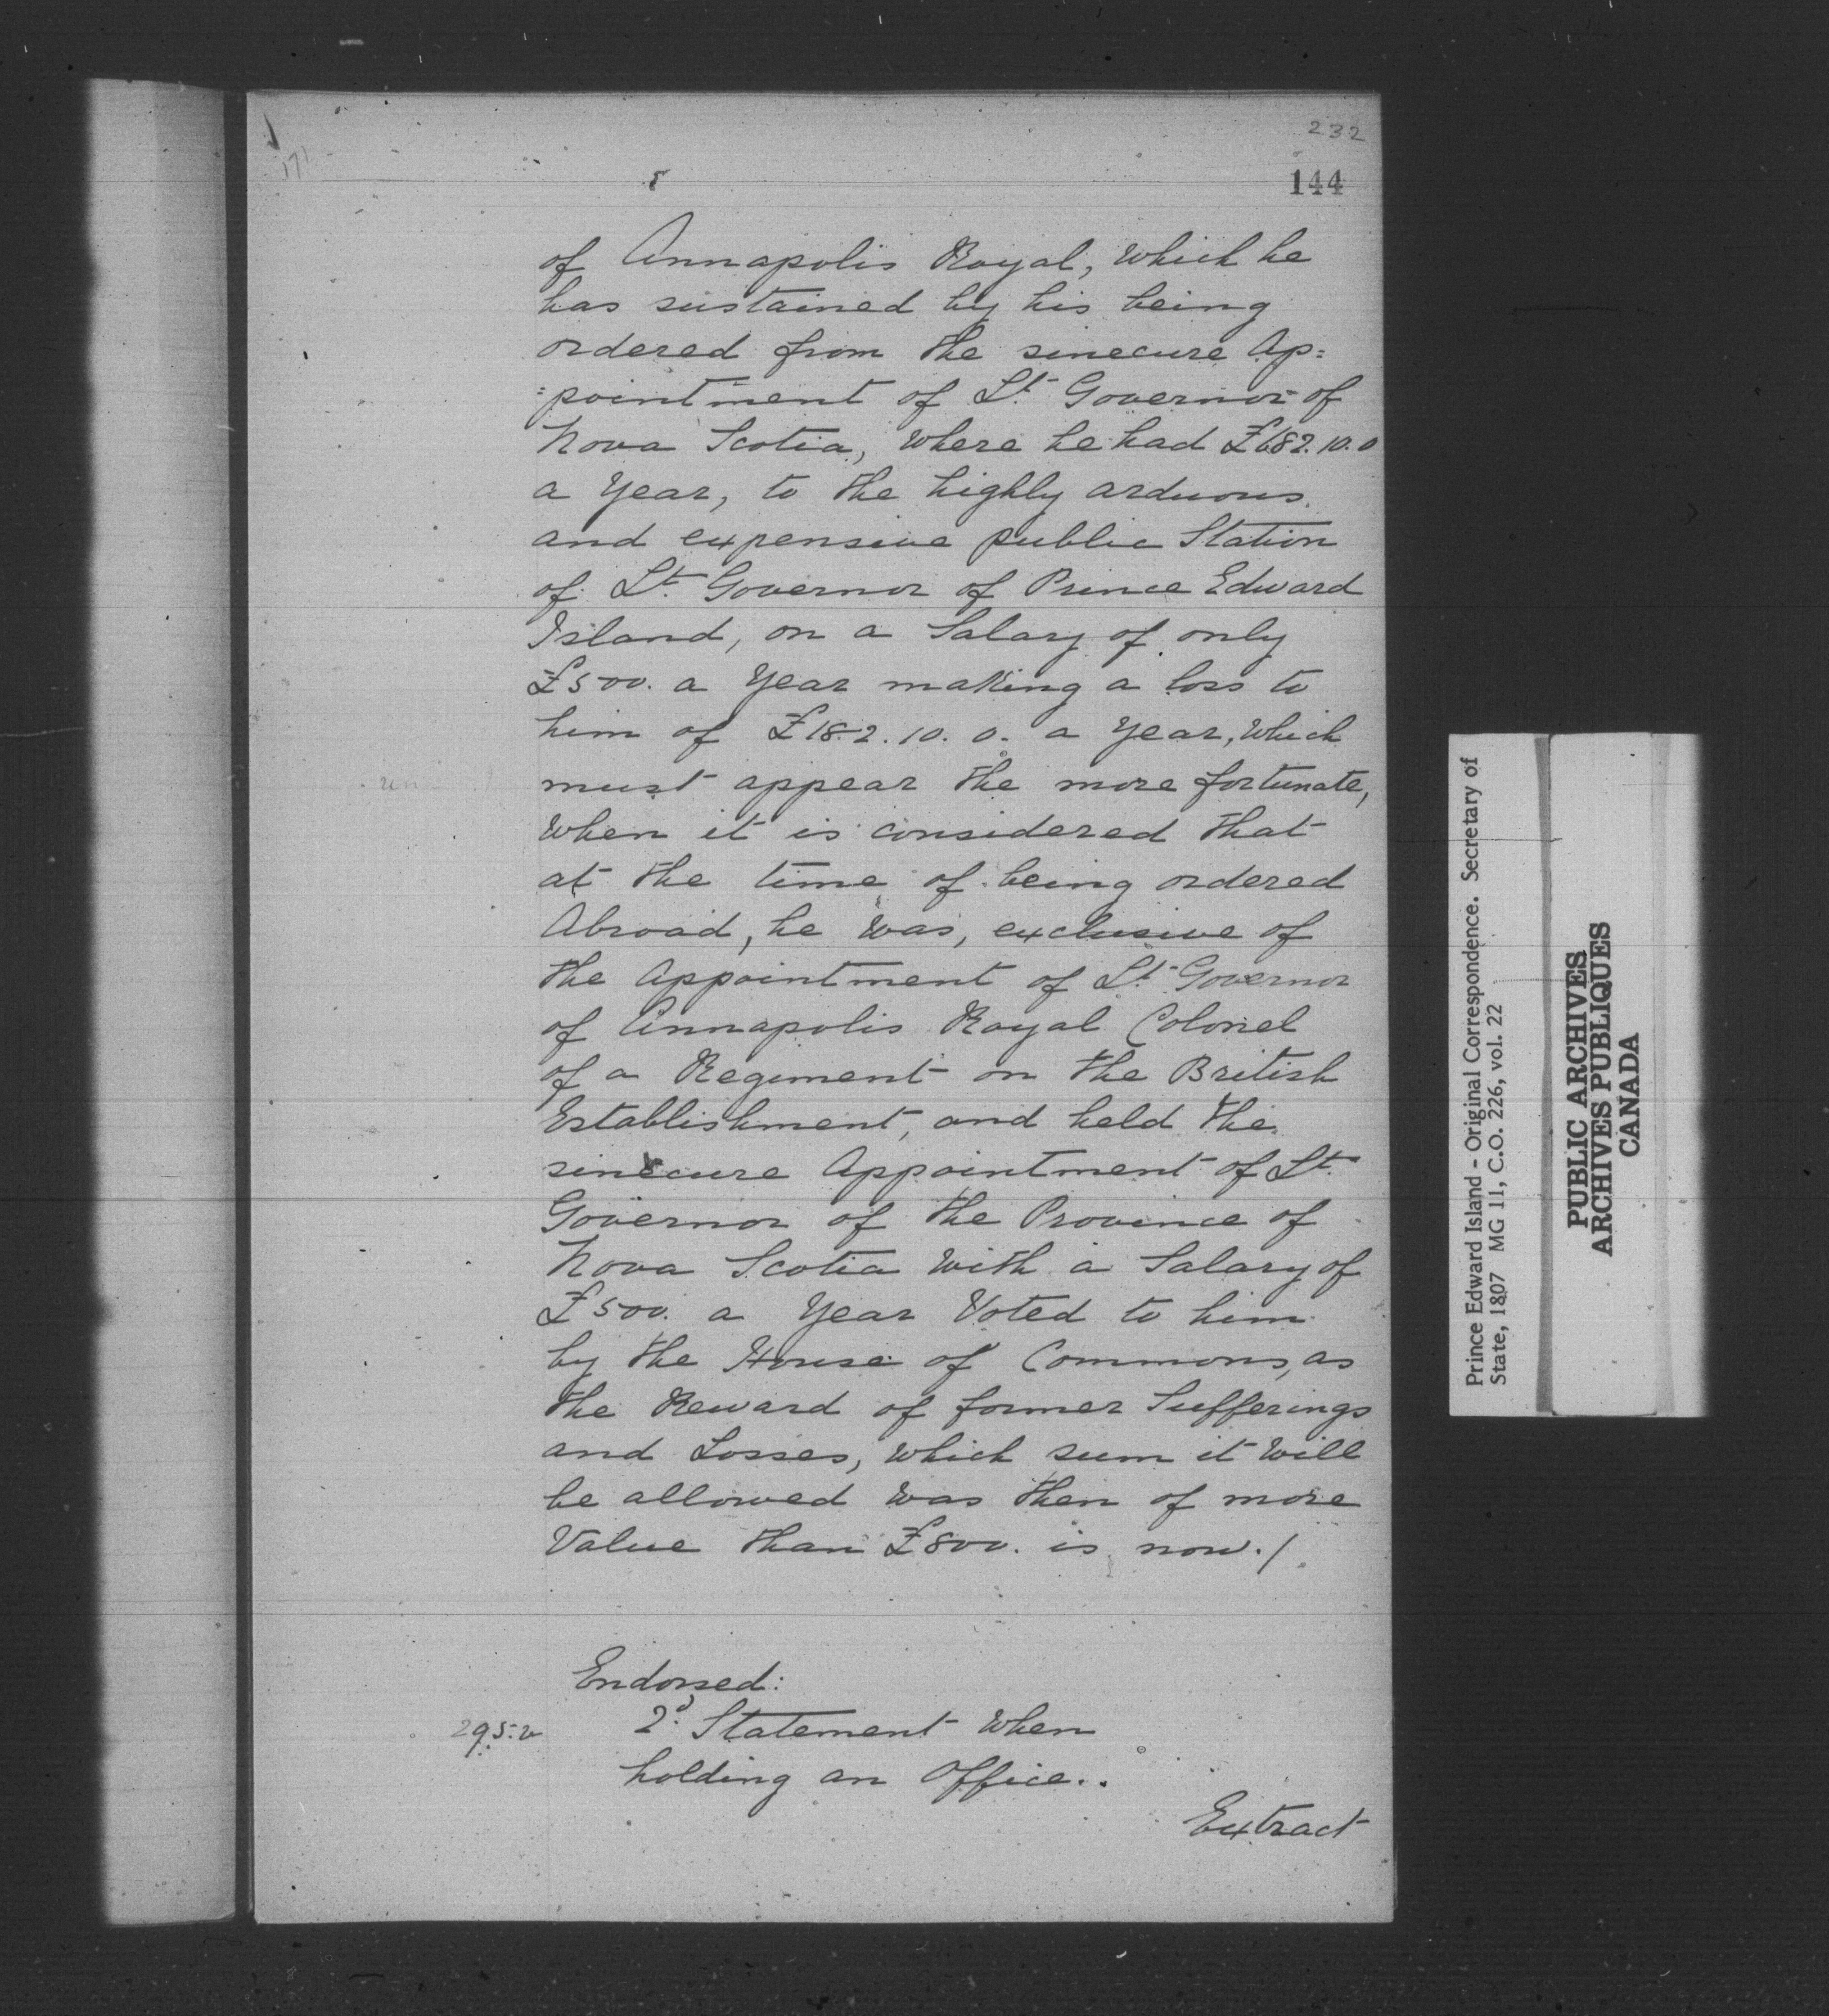 232
171
144
of Annapolis Royal, which he
has sustained by his being
ordered from the sinecure Ap=
=pointment of Lt Governor of
Nova Scotia, where he had £682.10.0
a Year, to the highly arduous
and expensive public Station
of Lt Governor of Prince Edward
Island, on a Salary of only
£500. a Year making a loss to
him of £182.10.0. a Year, which
un
must appear the more fortunate,
when it is considered that
at the time of being ordered
Abroad, he was, exclusive of
the Appointment of Lt Governor
of Annapolis Royal Colonel
of a Regiment on the British
Establishment, and held the
sinecure Appointment of Lt
Governor of the Province of
Nova Scotia with a Salary of
£500. a Year Voted to him
by the House of Commons, as
the Reward of former Sufferings
and Losses, which sum it will
be allowed was then of more
Value than £800. is now./.
Endorsed:
295.v
2d. Statement when
holding an Office..
Extract
Prince Edward Island - Original Correspondence. Secretary of
State, 1807 MG 11, C.O. 226, vol. 22
PUBLIC ARCHIVES
ARCHIVES PUBLIQUES
CANADA